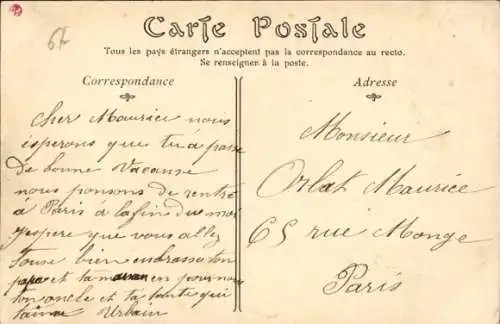 67
Carte Postale
Tous les pays étrangers n'acceptent pas la correspondance au recto.
Se renseigner à la poste.
Correspondance
Adresse
cher Maurice nous
esperons que tu a passe
de bonne Vacanse
nous ponsons de rentré
à Paris à la fin du moi
jespere que vous allez
touse bien embrasse ton
papa et ta maman en pour nous
ton oncle et ta tante qui
taime Urbain
Monsieur
Orlat Maurice
65 rue Monge
Paris